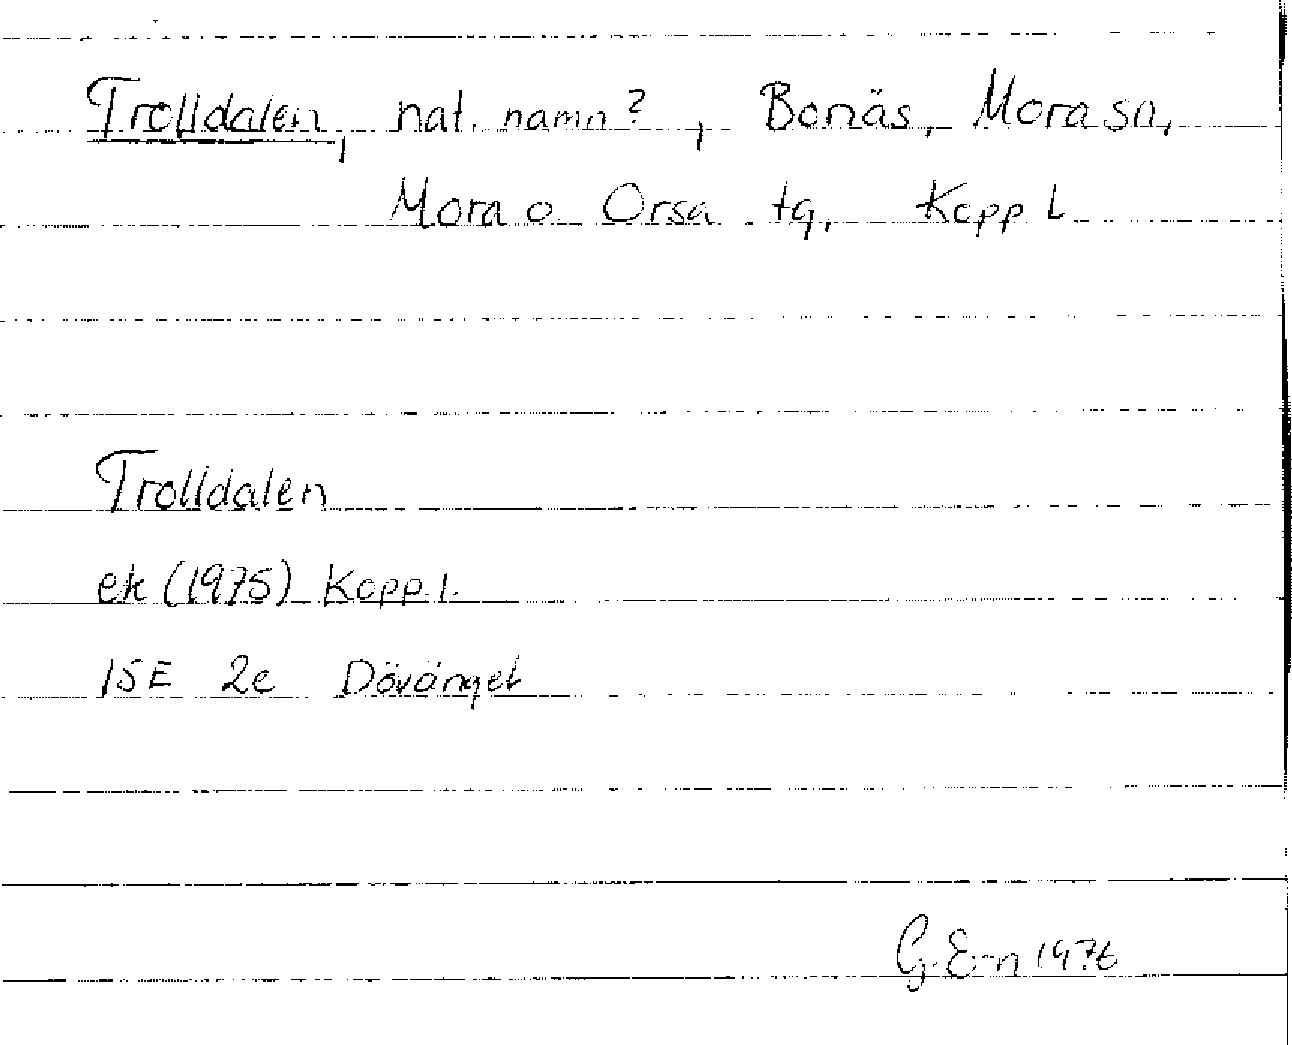 Trolldalen, nat. namn?, Bonäs, Mora sn,
Mora o Orsa tg, Kopp l
Trolldalen
ek (1975) Kopp. l.
15E 2e Dövänget
G. E-n 1976